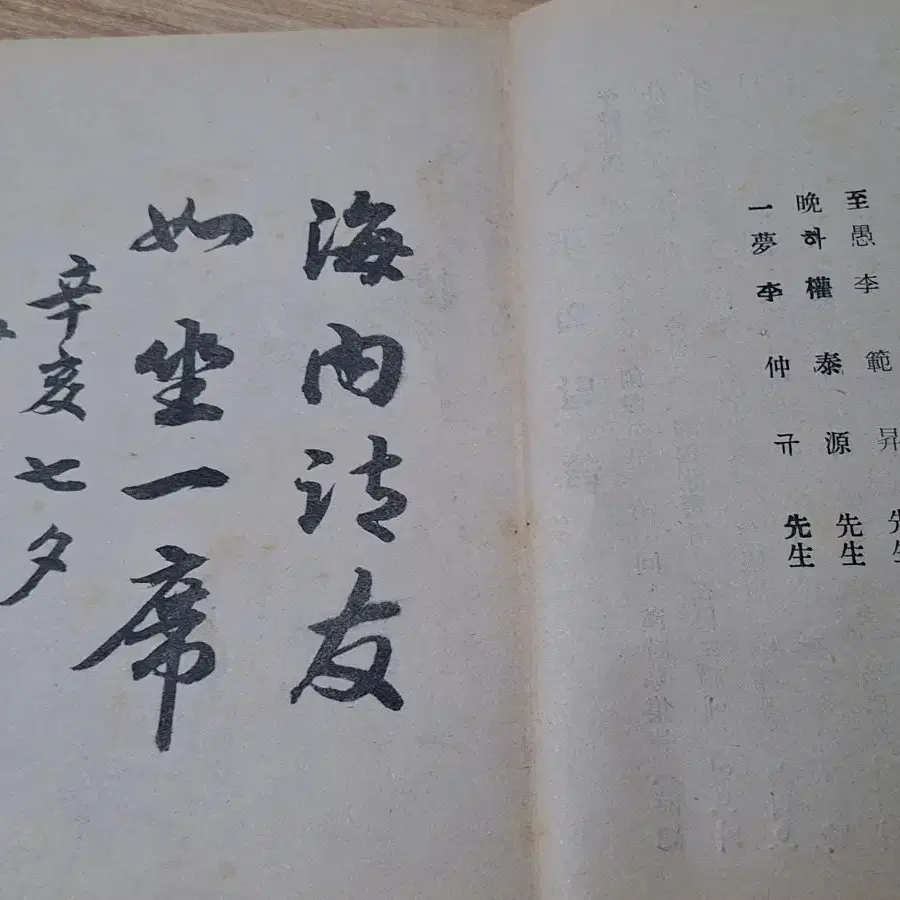 至愚 李範昇 先生
晩하 權泰源 先生
一夢 李仲규 先生
海內諸友
如坐一席
辛亥七夕